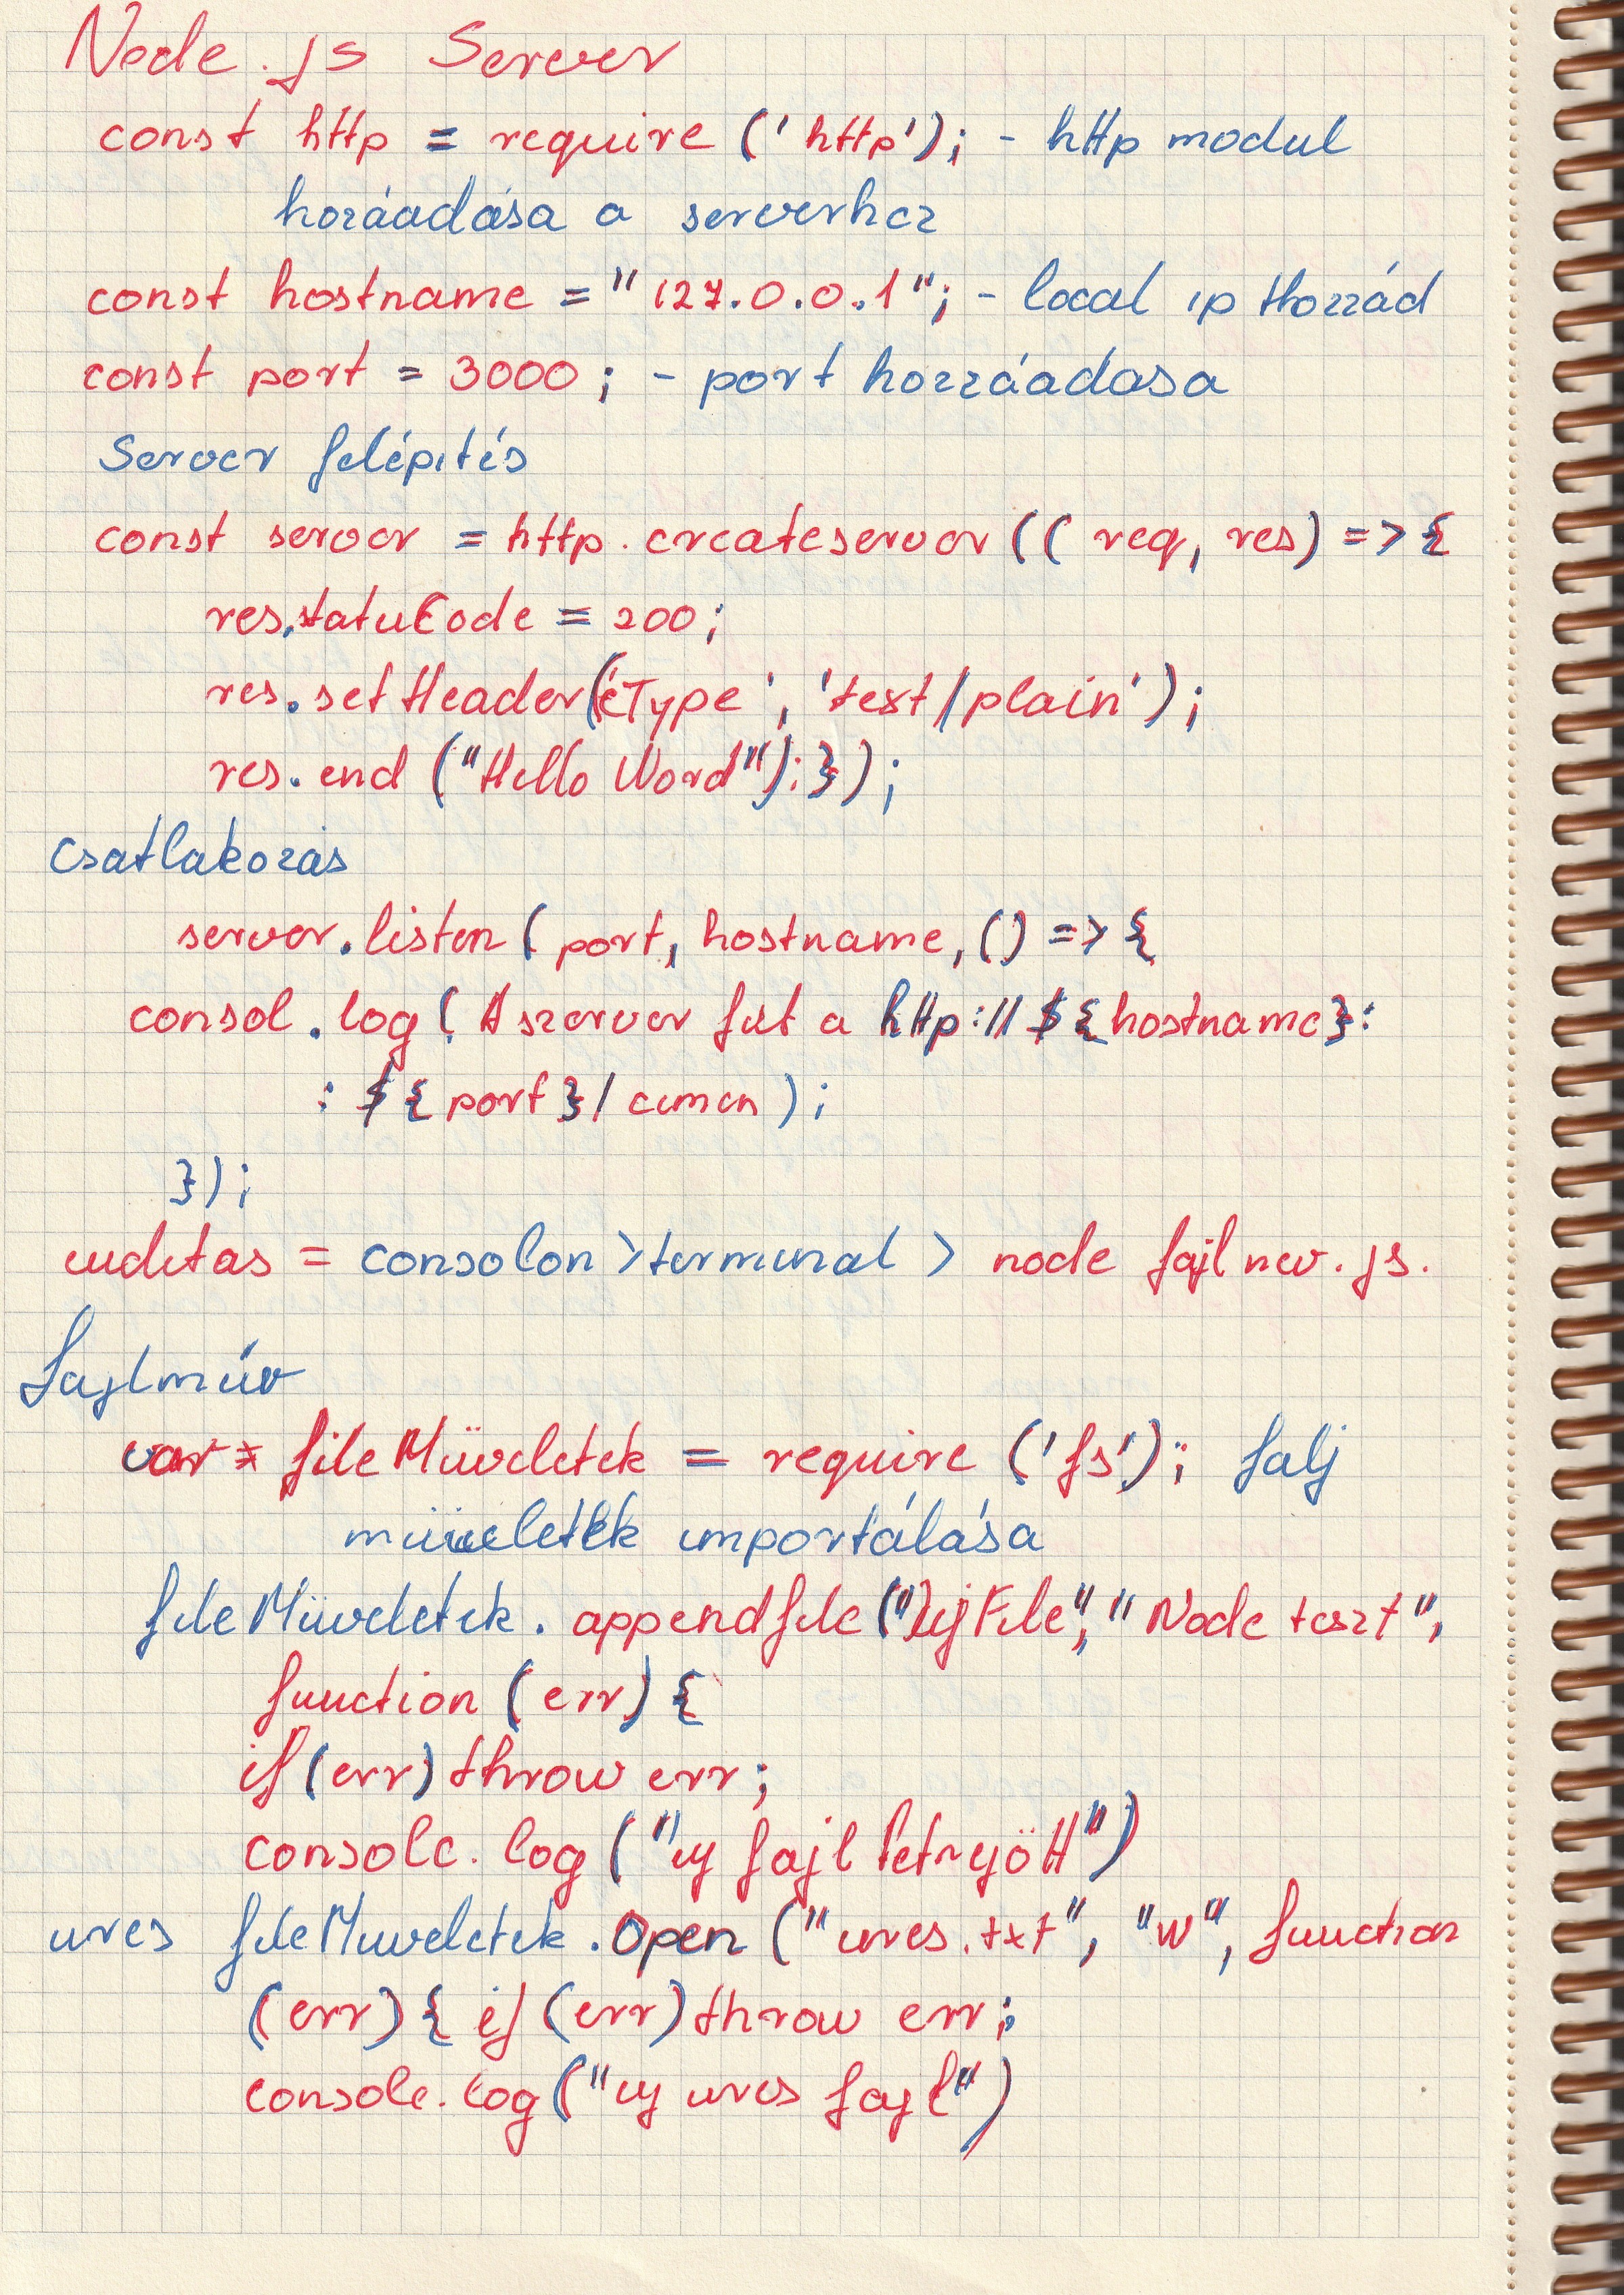 Node.js Server
const http = require ('http'); - http modul
hozáadása a serverhez
const hostname = "127.0.0.1"; - local ip Hozzád
const port = 3000; - port hozzáadása
Server felépités
const server = http.createserver (( req, res) => {
res.statuCode = 200;
res.setHeader('cType', 'text/plain');
res.end ("Hello Word");});
Csatlakozás
server.listen ( port, hostname, () => {
consol.log ( A szerver fut a http://${hostname}:
: ${port}/ cimen );
});
inditas = consolon > terminal > node fajlnev.js.
fajlmúv
var * fileMüveletek = require ('fs'); falj
müveletek importálása
fileMüveletek.appendfile ("UjFile", "Node teszt",
function (err) {
if (err) throw err;
console.log ("uj fajl letrejött")
ures fileMuveletek.Open ("ures.txt", "w", function
(err) { if (err) throw err;
console.log ("uj ures fajl")